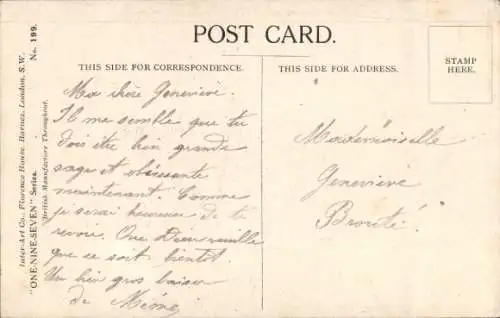 POST CARD.
THIS SIDE FOR CORRESPONDENCE.
THIS SIDE FOR ADDRESS.
STAMP
HERE.
Inter-Art Co., Florence House, Barnes, London, S.W.
"ONE-NINE-SEVEN" Series.
British Manufacture Throughout.
No. 199.
Ma chère Geneviève.
Il me semble que tu
dois être bien grande
sage et obéissante
maintenant. Comme
je serai heureuse de te
revoir. Que Dieu veuille
que ce soit bientôt.
Un bien gros baiser
de Mémé,
Mademoiselle
Geneviève